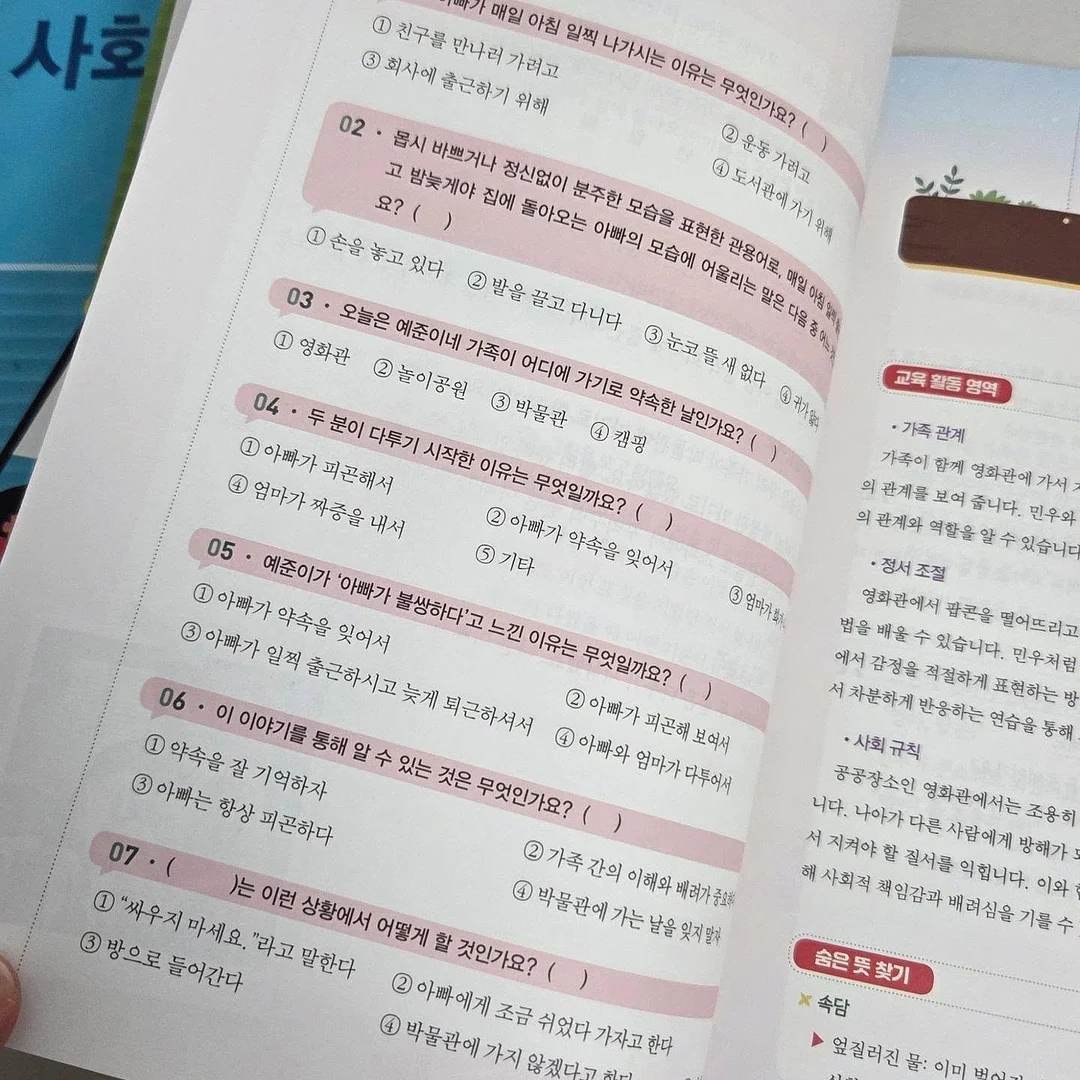 사회
아빠가 매일 아침 일찍 나가시는 이유는 무엇인가요? ( )
① 친구를 만나러 가려고
② 운동 가려고
③ 회사에 출근하기 위해
④ 도서관에 가기 위해
02 · 몹시 바쁘거나 정신없이 분주한 모습을 표현한 관용어로, 매일 아침 일찍
고 밤늦게야 집에 돌아오는 아빠의 모습에 어울리는 말은 다음 중 어느
요? ( )
① 손을 놓고 있다 ② 발을 끌고 다니다 ③ 눈코 뜰 새 없다 ④ 귀가
03 · 오늘은 예준이네 가족이 어디에 가기로 약속한 날인가요? ( )
① 영화관 ② 놀이공원 ③ 박물관 ④ 캠핑
04 · 두 분이 다투기 시작한 이유는 무엇일까요? ( )
① 아빠가 피곤해서 ② 아빠가 약속을 잊어서 ③ 엄마가
④ 엄마가 짜증을 내서 ⑤ 기타
05 · 예준이가 ‘아빠가 불쌍하다’고 느낀 이유는 무엇일까요? ( )
① 아빠가 약속을 잊어서 ② 아빠가 피곤해 보여서
③ 아빠가 일찍 출근하시고 늦게 퇴근하셔서 ④ 아빠와 엄마가 다투어서
06 · 이 이야기를 통해 알 수 있는 것은 무엇인가요? ( )
① 약속을 잘 기억하자 ② 가족 간의 이해와 배려가
③ 아빠는 항상 피곤하다 ④ 박물관에 가는 날을 잊지 말자
07 · ( )는 이런 상황에서 어떻게 할 것인가요? ( )
① “싸우지 마세요.”라고 말한다 ② 아빠에게 조금 쉬었다 가자고 한다
③ 방으로 들어간다 ④ 박물관에 가지 않겠다고 한다
교육 활동 영역
• 가족 관계
가족이 함께 영화관에 가서
의 관계를 보여 줍니다. 민우와
의 관계와 역할을 알 수 있습니다
• 정서 조절
영화관에서 팝콘을 떨어뜨리고
법을 배울 수 있습니다. 민우처럼
에서 감정을 적절하게 표현하는 방
서 차분하게 반응하는 연습을 통해
• 사회 규칙
공공장소인 영화관에서는 조용히
니다. 나아가 다른 사람에게 방해가
서 지켜야 할 질서를 익힙니다. 이와
해 사회적 책임감과 배려심을 기를 수
숨은 뜻 찾기
속담
▶ 엎질러진 물: 이미